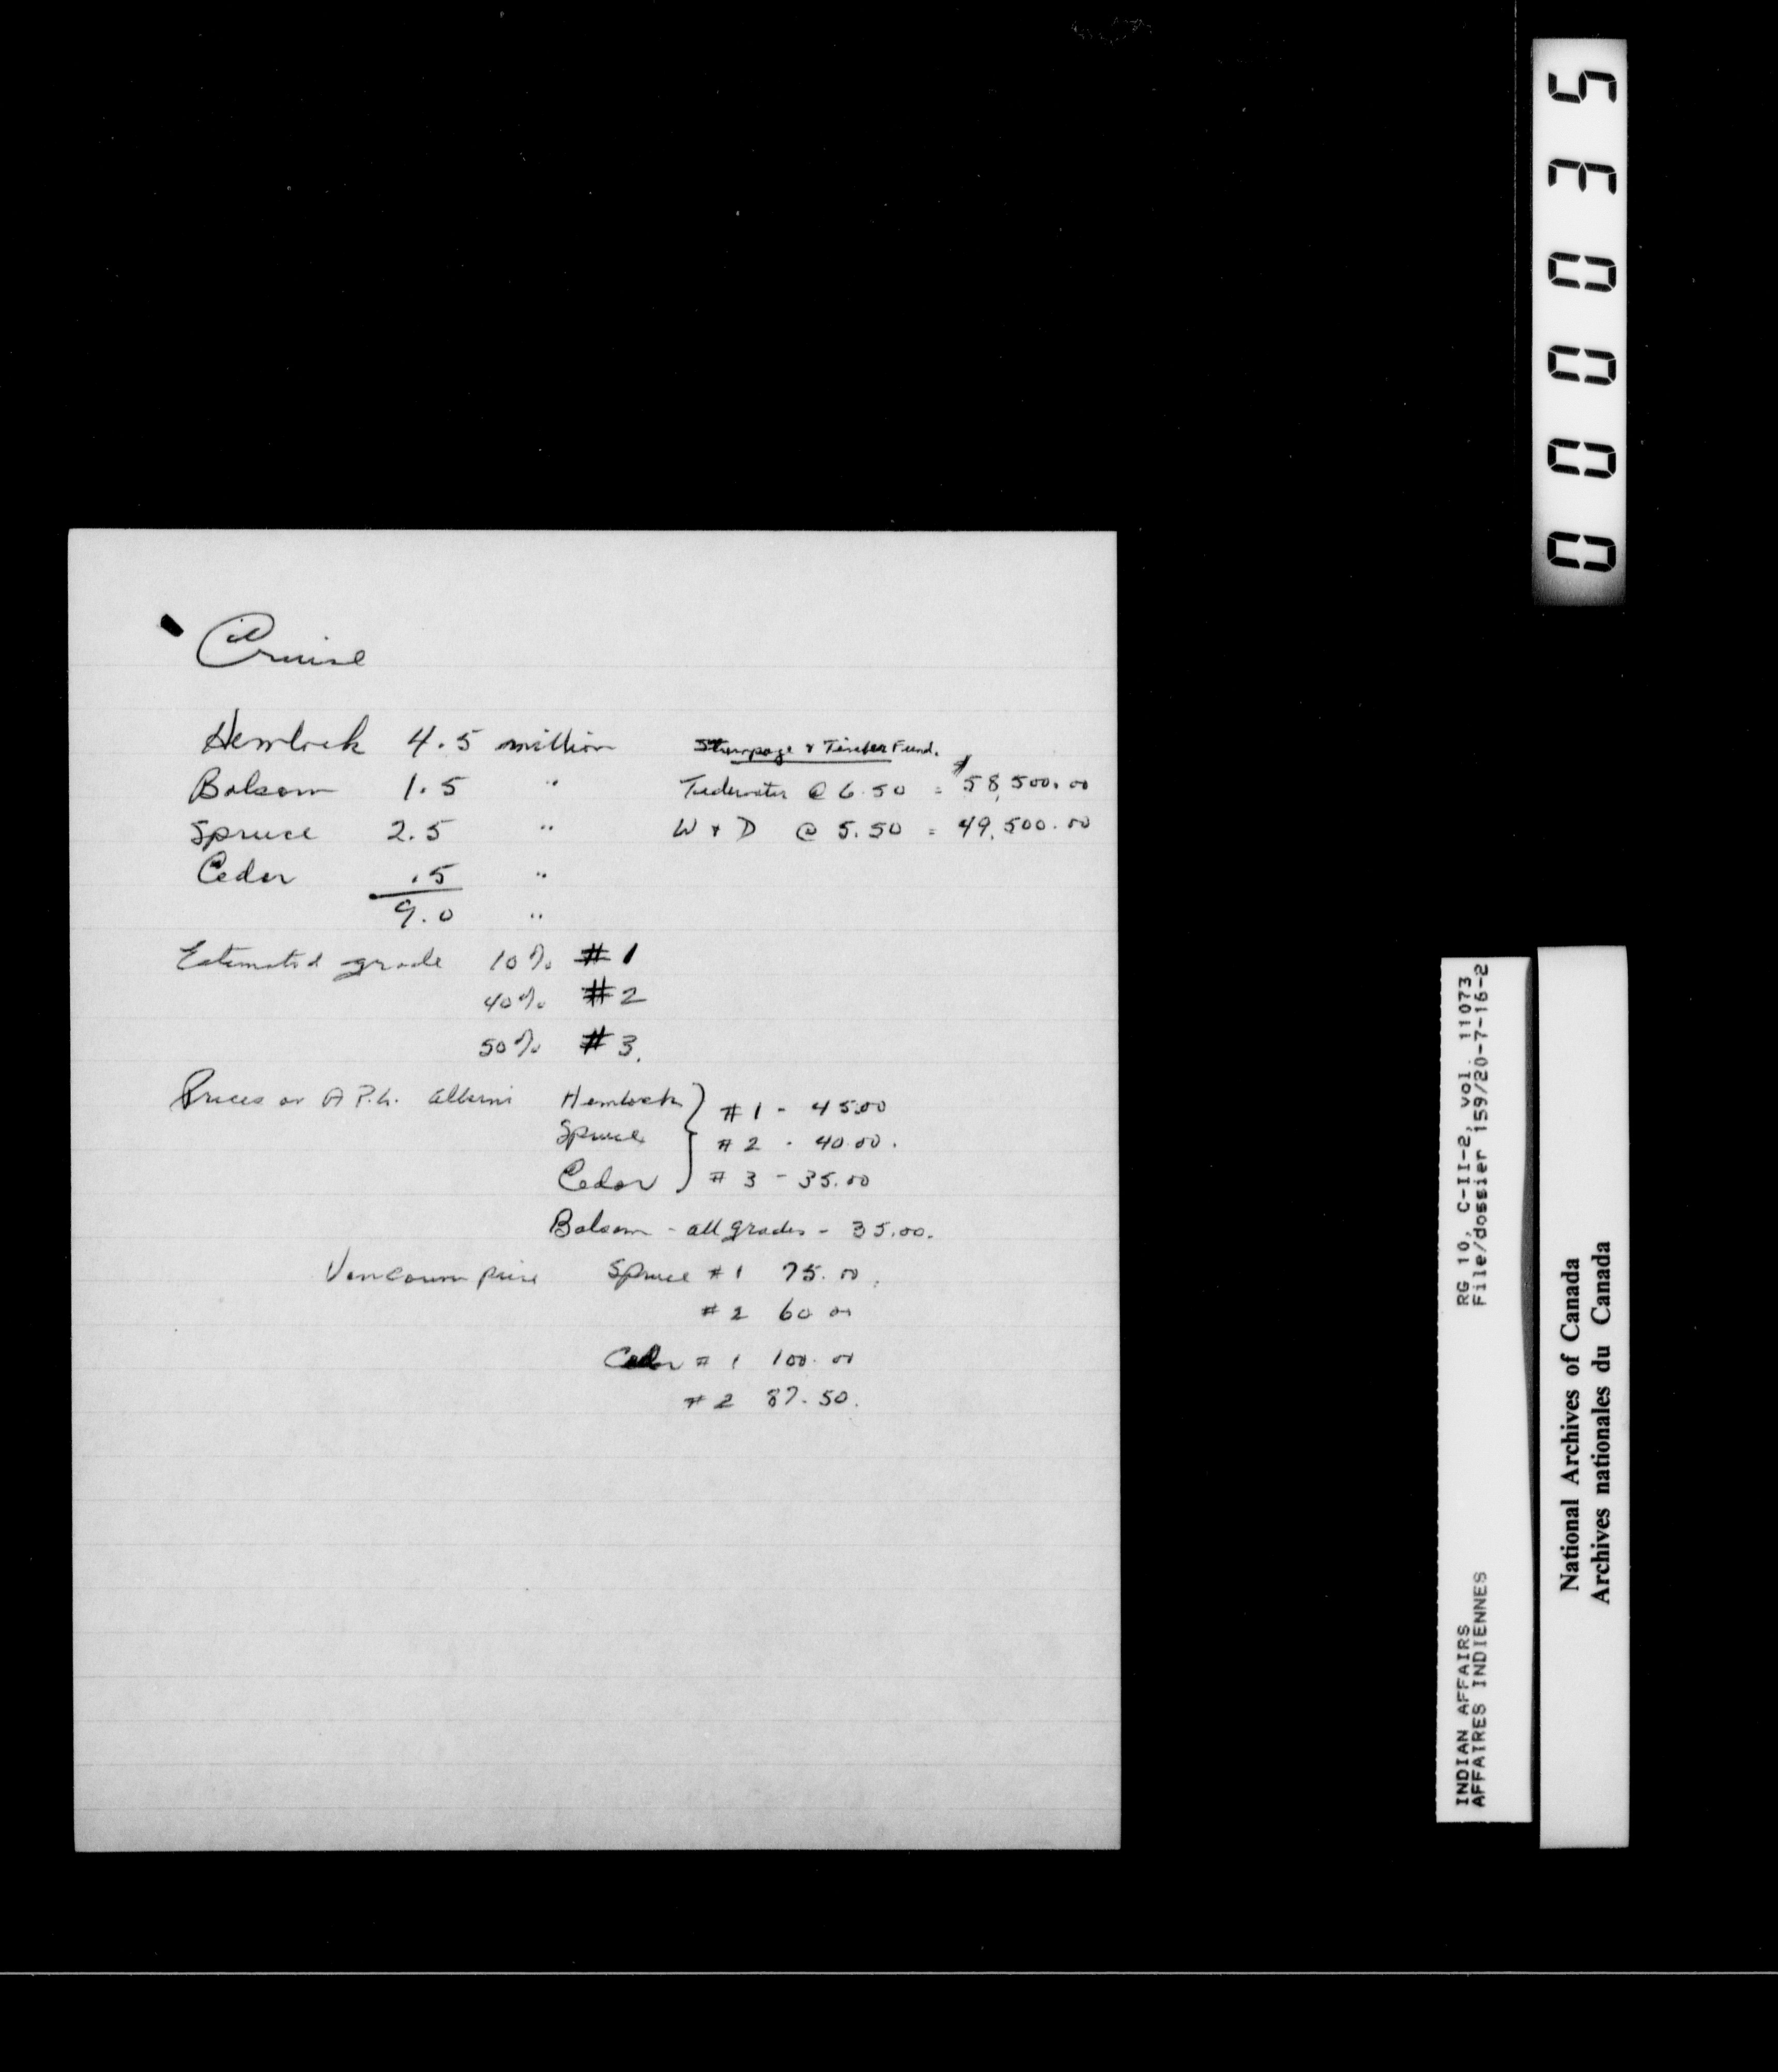 Cruise
Hemlock 4.5 million
Balsam 1.5 "
Spruce 2.5 "
Cedar .5 "
9.0 "
Stumpage & Timber Fund.
Tidewater @ 6.50 = $58,500.00
W & D @ 5.50 = 49,500.00
Estimated grade 10% #1
40% #2
50% #3.
Prices at Alberni Hemlock } #1 - 45.00
Spruce #2 - 40.00.
Cedar #3 - 35.00
Balsam - all grades - 35.00.
Vancouver price Spruce #1 75.00.
#2 60.00
Cedar #1 100.00
#2 87.50.
000035
INDIAN AFFAIRS RG 10, C-II-2, vol. 11073
AFFAIRES INDIENNES File/dossier 159/20-7-16-2
National Archives of Canada
Archives nationales du Canada